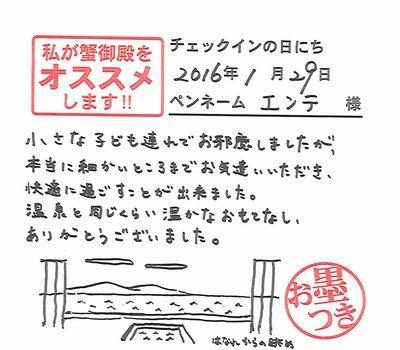 私が蟹御殿を
オススメ
します!!
チェックインの日にち
2016年 1月 29日
ペンネーム エンテ 様
小さな子ども連れでお邪魔しましたが、
本当に細かいところまでお気遣いいただき、
快適に過ごすことが出来ました。
温泉と同じくらい温かなおもてなし、
ありがとうございました。
お墨つき
はなれからの眺め